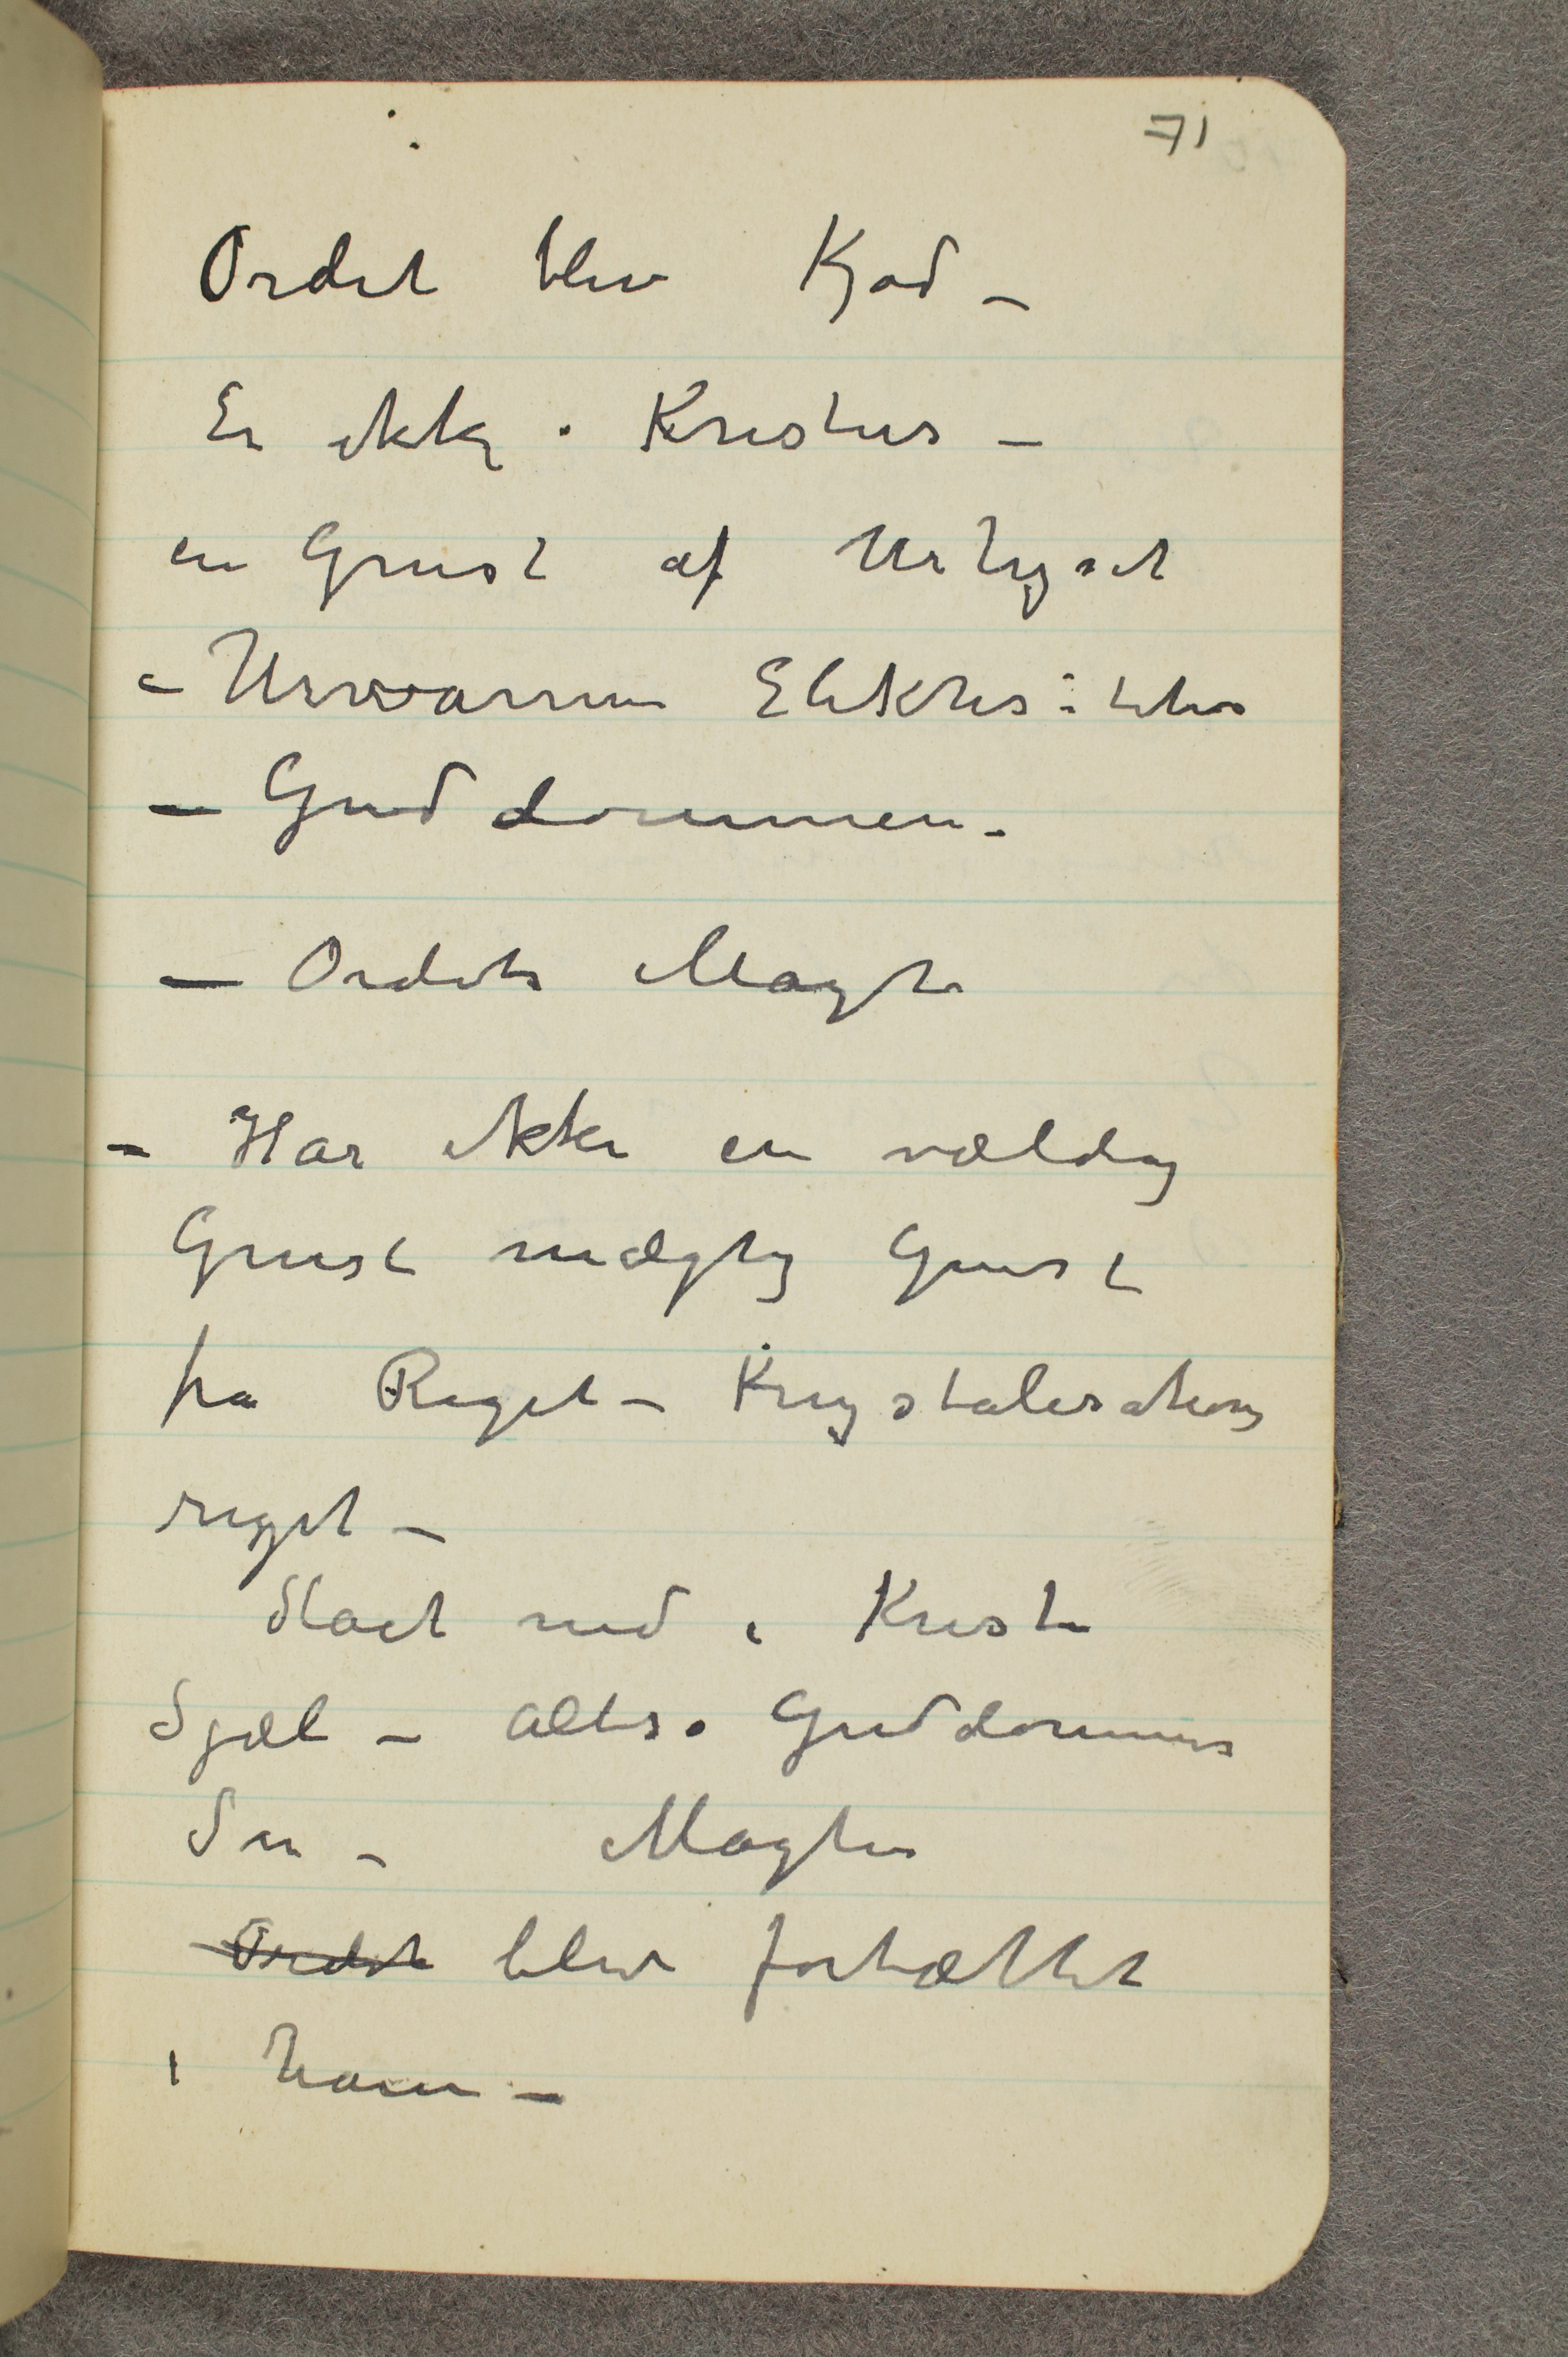 71
Ordet blev Kjød –
Er ikke i Kristus –
en Gnist af Urlyset
– Urvarmen Elektrisiteten
– Guddommen –
– Ordets Magt
– Har ikke en vældig
Gnist mægtig Gnist
fra Riget – Krystalisations
riget –
Slaaet ned i Kristi
Sjæl – altså Guddommens
Søn – Magten
Ordet blev fortættet
i ham –